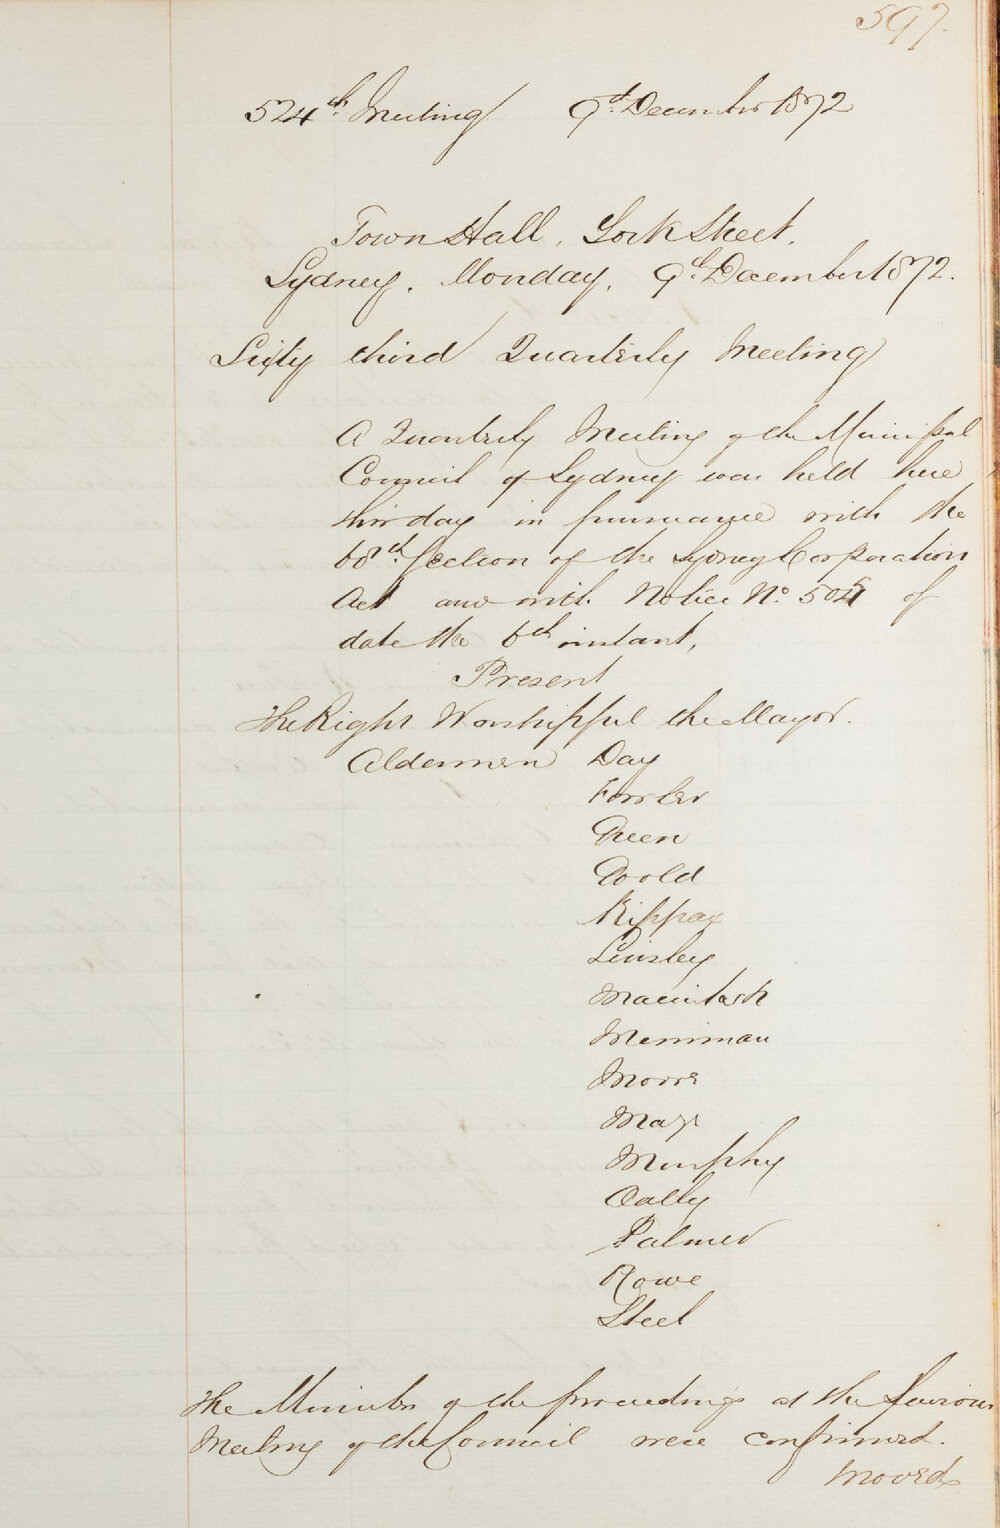 597.
524th Meeting 9th December 1872
Town Hall, York Street,
Sydney, Monday, 9th December 1872.
Sixty third Quarterly Meeting
A Quarterly Meeting of the Municipal
Council of Sydney was held here
this day in pursuance with the
68th Section of the Sydney Corporation
Act and with Notice No. 505 of
date the 6th instant,
Present
The Right Worshipful the Mayor.
Aldermen Day
Fowler
Green
Goold
Kippax
Linsley
Macintosh
Merriman
Moore
Murphy
Oatley
Palmer
Rowe
Steel
The Minutes of the proceedings at the previous
Meeting of the Council were confirmed.
Moved